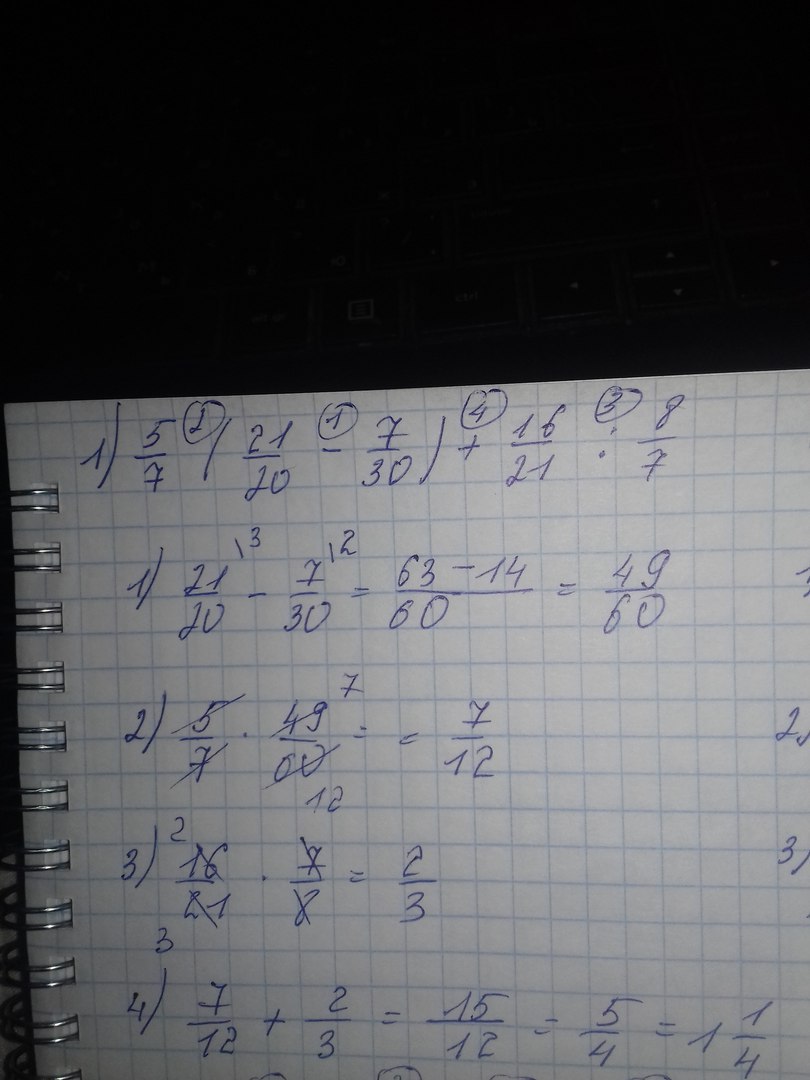 1) 5/7 ② ( 21/20 ① - 7/30 ) ④ + 16/21 ③ : 8/7
1) 21/20 \3 - 7/30 \2 = 63-14/60 = 49/60
2) 5/7 · 49/60 7 12 = = 7/12
3) 2 16/21 3 · 7/8 = 2/3
4) 7/12 + 2/3 = 15/12 = 5/4 = 1 1/4
2)
3)
Ctrl